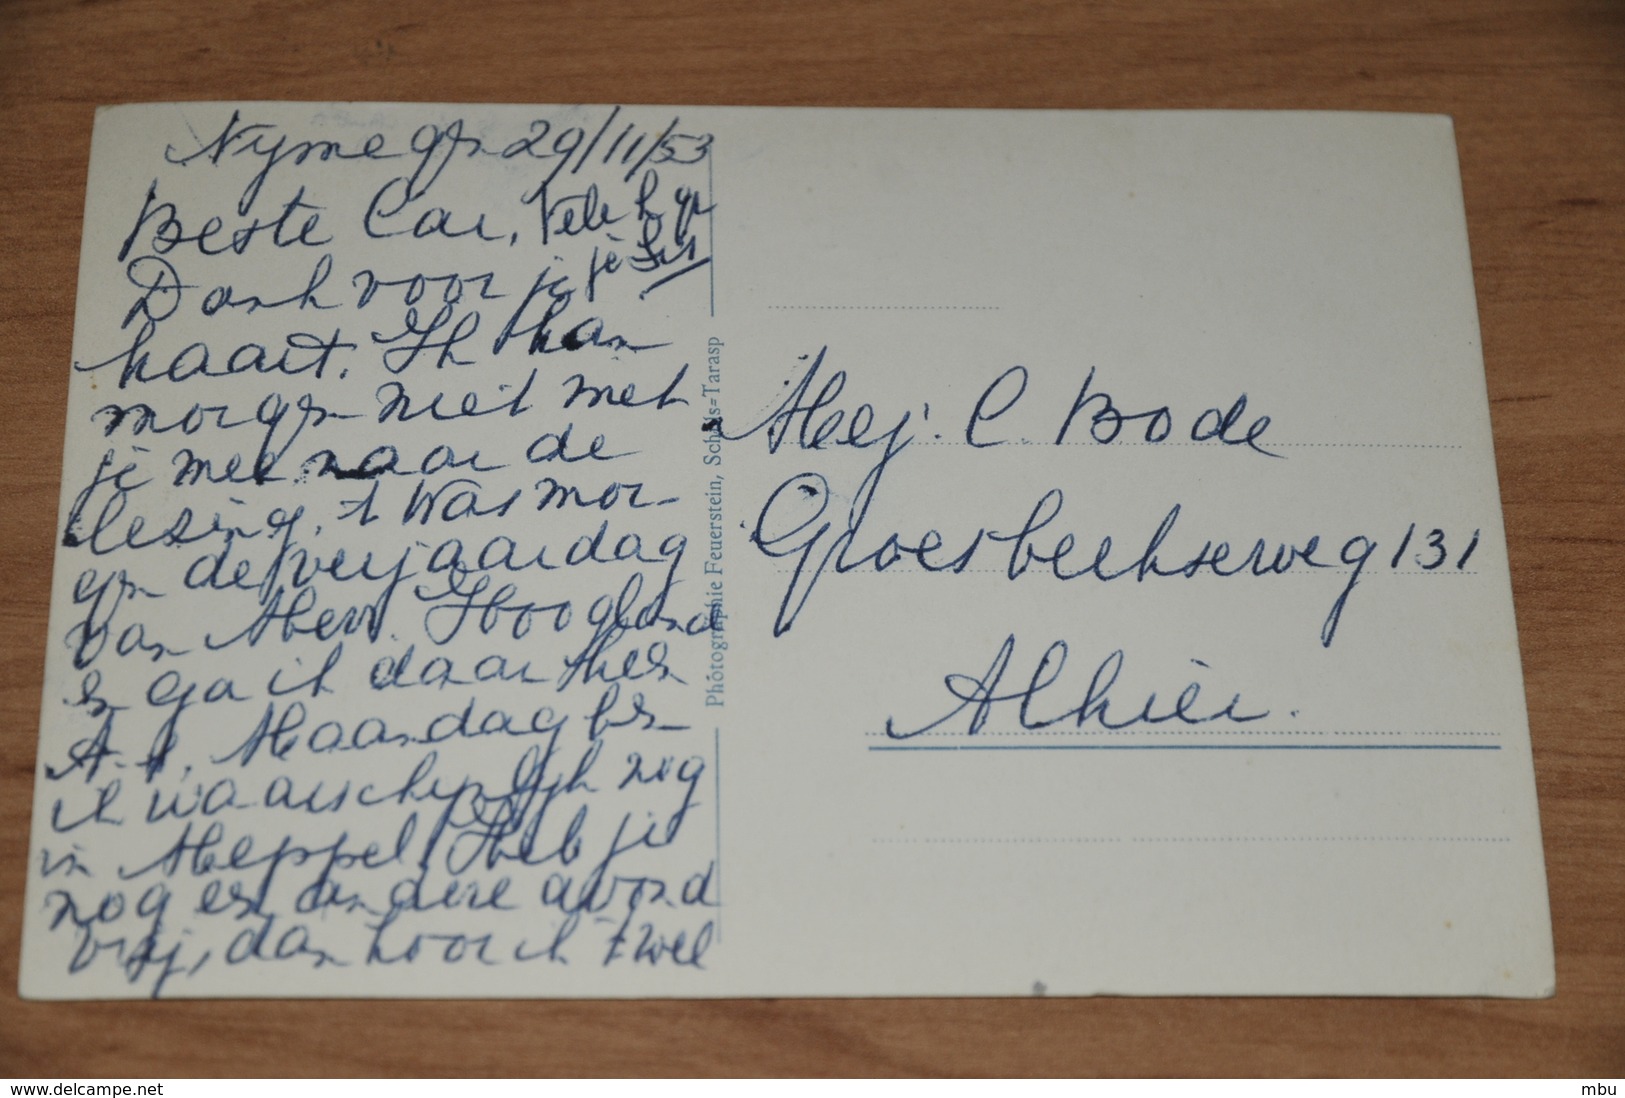 Nymegen 29/11/53
Beste Car, Vele h. gr
je
Dank voor je
kaart. Ik kan
morgen niet met
je mee naar de
lezing, 't was mor-
gen de verjaardag
van Mevr. Hoogland
en ga ik daar heen
A.s. Maandag ben
ik waarschijnlijk nog
in Meppel. Heb je
nog een andere avond
vrij, dan hoor ik 't wel
Photographie Feuerstein, Schuls=Tarasp
Mej. C. Bode
Groesbeekseweg 131
Alhier.
www.delcampe.net
mbu